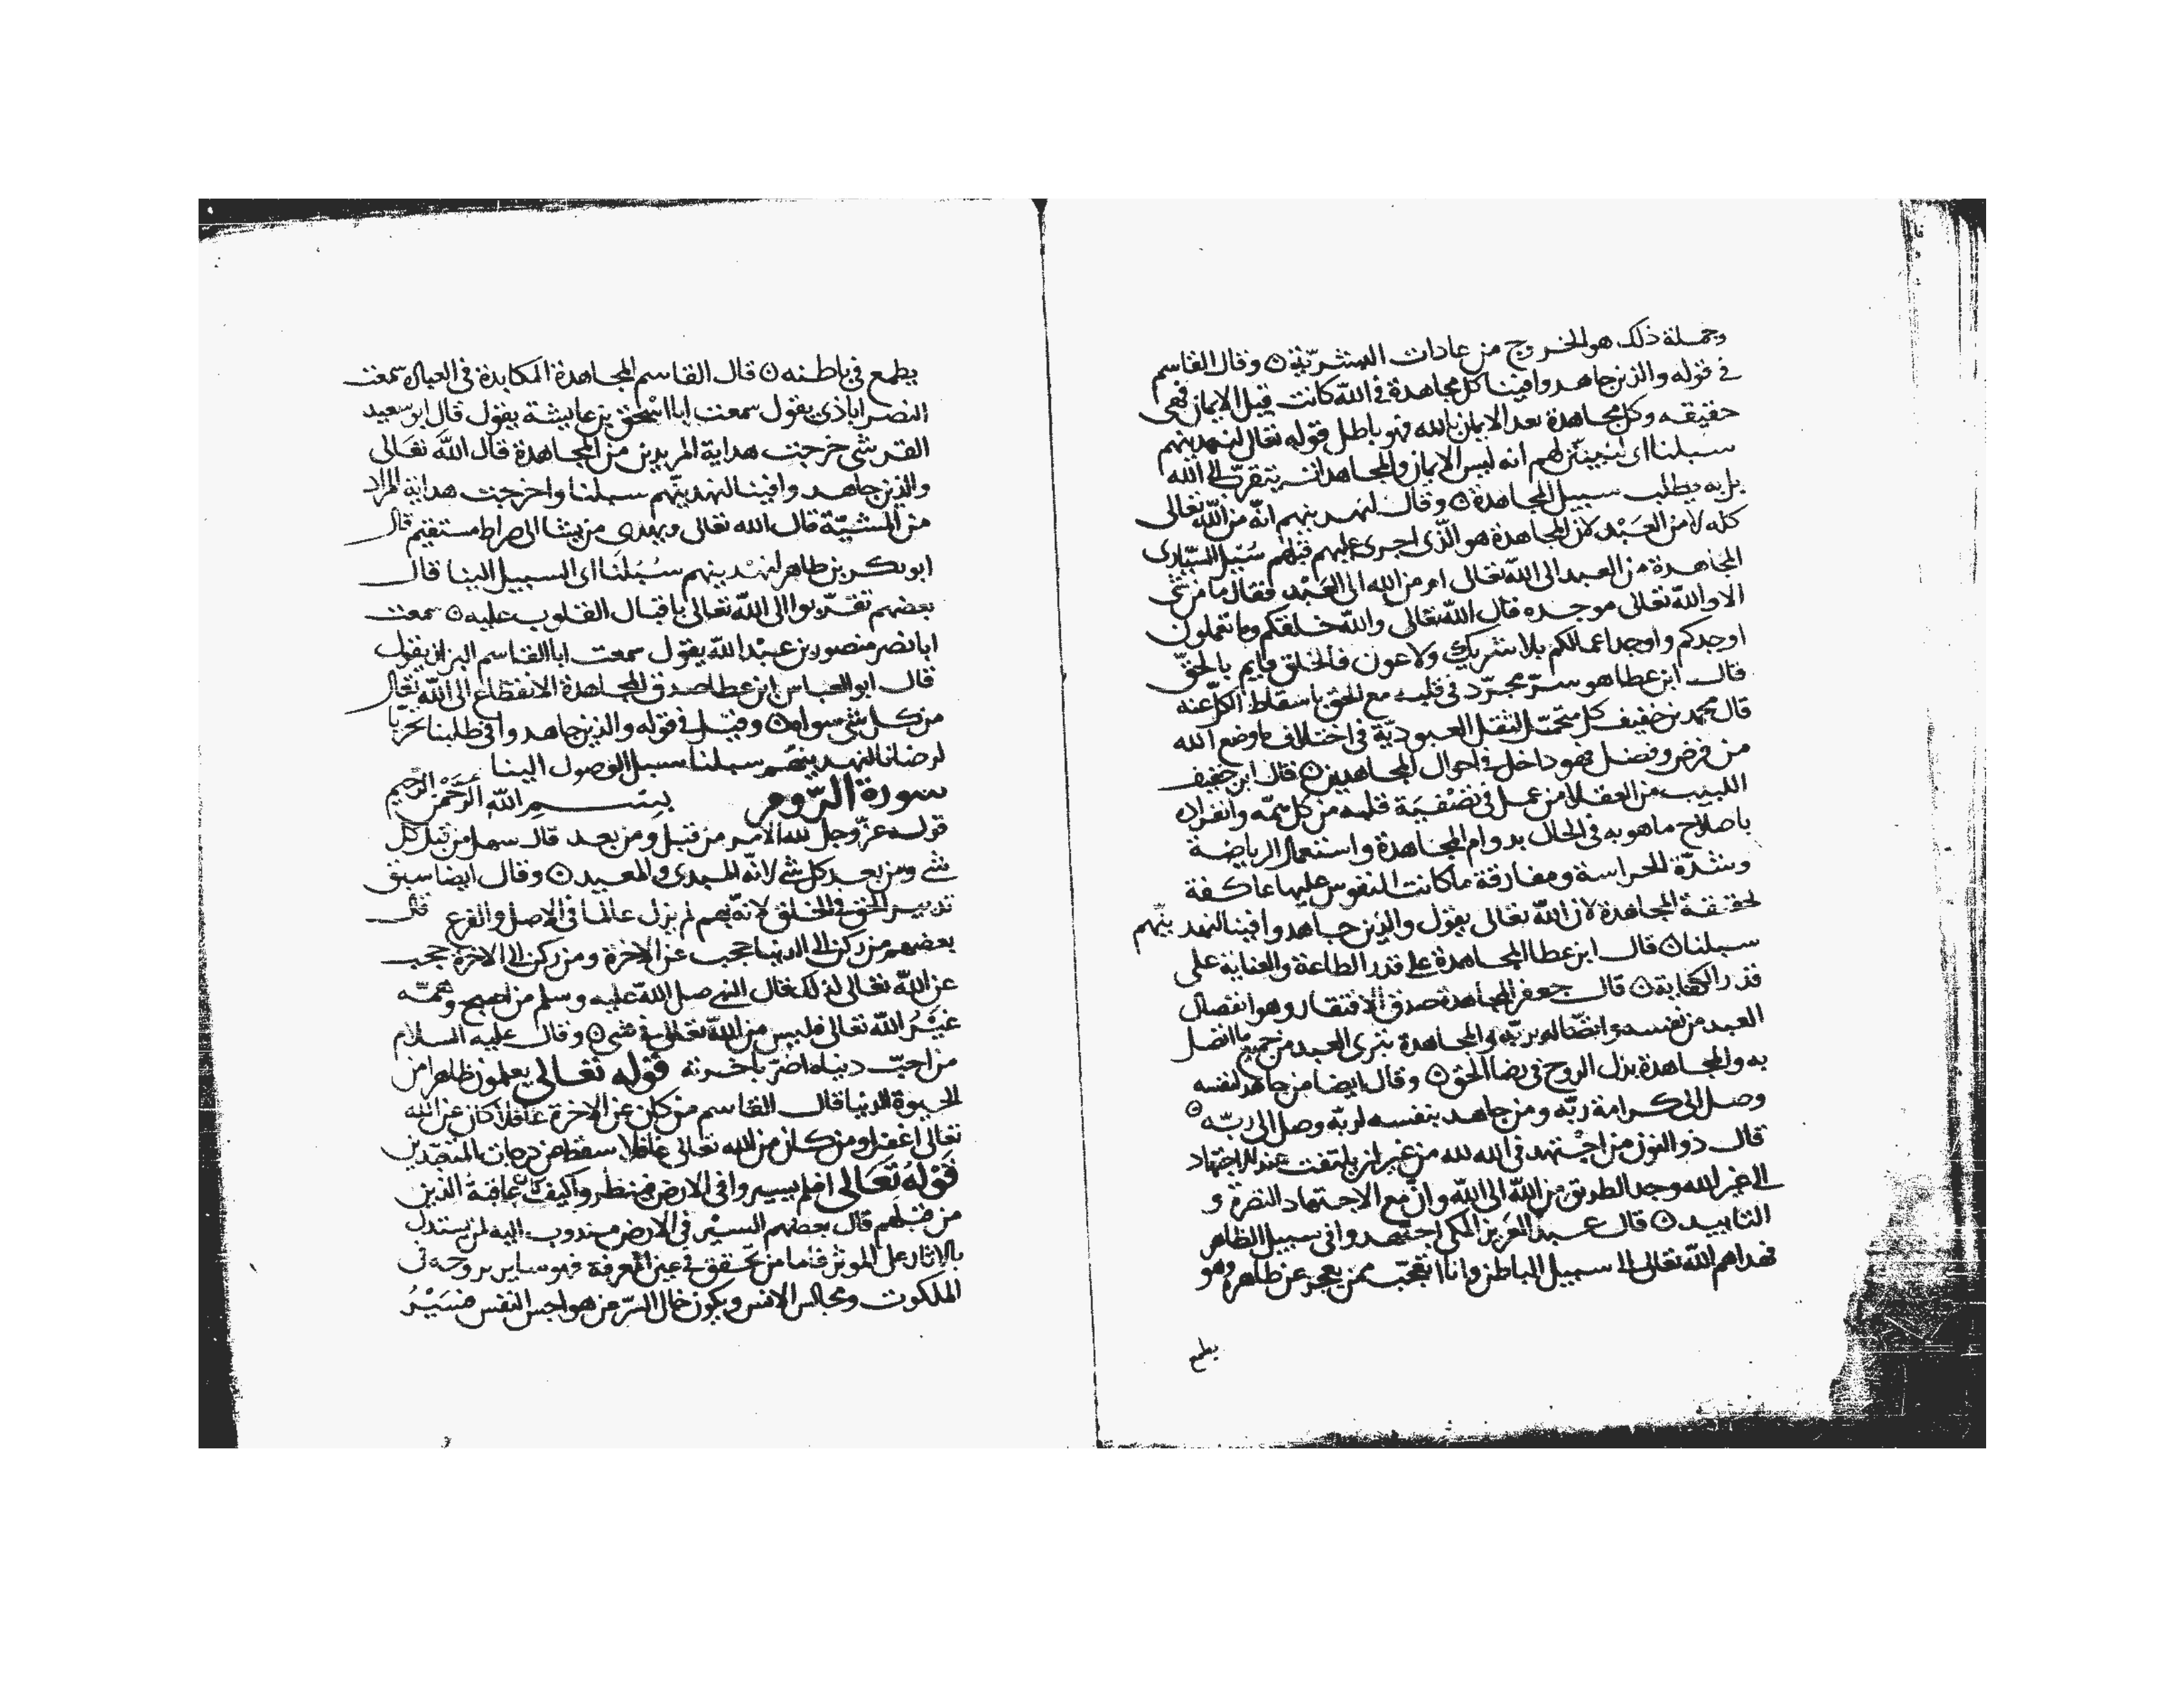 وجملة ذلك هو الخروج من عادات البشرية ۞ وقال القاسم
في قوله والذين جاهدوا فينا كل مجاهدة في الله كانت قبل الايمان فهي
حقيقه وكل مجاهدة بعد الايمان بالله فهو باطل قوله تعالى لنهدينهم
سبلنا اي لنبينن لهم انه ليس الايمان والمجاهدات يتقرب الى الله
بل به يطلب سبيل المجاهدة ۞ وقال لنهدينهم انه من الله تعالى
كله لا من العبد لان المجاهدة هو الذي اجرى عليهم قبلهم سئل السياري
المجاهدة من العبد الى الله تعالى ام من الله الى العبد فقال ما من شي
الا والله تعالى موجده قال الله تعالى والله خلقكم وما تعملون
اوجدكم واوجد اعمالكم بلا شريك ولا عون فالخلق قايم بالحق
قال ابن عطا هو سر مجرد في قلب مع الحق باسقاط الكل عنه
قال محمد بن خفيف كل متحمل لثقل العبودية في اختلاف ما وضع الله
من فرض وفضل فهو داخل في احوال المجاهدين ۞ قال ابن خفيف
اللبيب من العقلا من عمل في تصفية قلبه من كل همه وانفراده
باصلاح ما هو به في الحال بدوام المجاهدة واستعمال الرياضة
وشدة الحراسة ومفارقة ما كانت النفوس عليها عاكفة
لحقيقة المجاهدة لان الله تعالى يقول والذين جاهدوا فينا لنهدينهم
سبلنا ۞ قال ابن عطا المجاهدة على قدر الطاعة والعناية على
قدر الكفاية ۞ قال جعفر المجاهدة صدق الافتقار وهو انفصال
العبد من نفسه واتصاله بربه والمجاهدة تبرى العبد من جميع ما اتصل
به والمجاهدة بذل الروح في رضا الحق ۞ وقال ايضا من جاهد لنفسه
وصل الى كرامة ربه ومن جاهد بنفسه لربه وصل الى ربه ۞
قال ذو النون من اجتهد في الله لله من غير ان يلتفت عند الاجتهاد
الى غير الله وجد الطريق من الله الى الله وان مع الاجتهاد النصرة و
التاييد ۞ قال عبد العزيز المكي اجتهدوا في سبيل الظاهر
فهداهم الله تعالى الى سبيل الباطن وانا اتعجب ممن يعجز عن ظاهره وهو
يطمع
يطمع في باطنه ۞ قال القاسم المجاهدة المكابدة في العبال سمعت
النصراباذي يقول سمعت ابا اسحق بن عايشة يقول قال ابو سعيد
القرشي خرجت هداية المريدين من المجاهدة قال الله تعالى
والذين جاهدوا فينا لنهدينهم سبلنا واخرجت هداية المراد
من المشية قال الله تعالى ويهدي من يشا الى صراط مستقيم قال
ابو بكر بن طاهر لنهدينهم سبلنا اي السبيل الينا قال
بعضهم تقربوا الى الله تعالى باقبال القلوب عليه ۞ سمعت
ابا نصر منصور بن عبد الله يقول سمعت ابا القاسم البزاز يقول
قال ابو العباس ابن عطا صدق المجاهدة الانقطاع الى الله تعالى
من كل شي سواه ۞ وقيل في قوله والذين جاهدوا في طلبنا تحريا
لرضانا لنهدينهم سبلنا سبل الوصول الينا
سورة الروم بسم الله الرحمن الرحيم
قوله عز وجل لله الامر من قبل ومن بعد قال سهل من قبل كل
شي ومن بعد كل شي لانه المبدي والمعيد ۞ وقال ايضا سبق
تدبير الحق في الخلق لانه بهم لم يزل عالما في الاصل والفرع قال
بعضهم من ركن الى الدنيا حجب عن الاخرة ومن ركن الى الاخرة حجب
عن الله تعالى لذلك قال النبي صلى الله عليه وسلم من اصبح وهمته
غير الله تعالى فليس من الله تعالى في شي ۞ وقال عليه السلام
من احب دنياه اضر باخرته قوله تعالى يعلمون ظاهرا من
الحيوة الدنيا قال القاسم من كان عن الاخرة غافلا كان عن الله
تعالى اغفل ومن كان من الله تعالى غافلا سقط من درجات المتصدين
قوله تعالى افلم يسيروا في الارض فينظروا كيف كان عاقبة الذين
من قبلهم قال بعضهم السير في الارض مندوب اليه لمن يستدل
بالاثار على الموثر فاما من تحقق في عين المعرفة فهو ساير بروحه في
الملكوت ومجالس الانس ويكون خال السر من هواجس النفس فسير